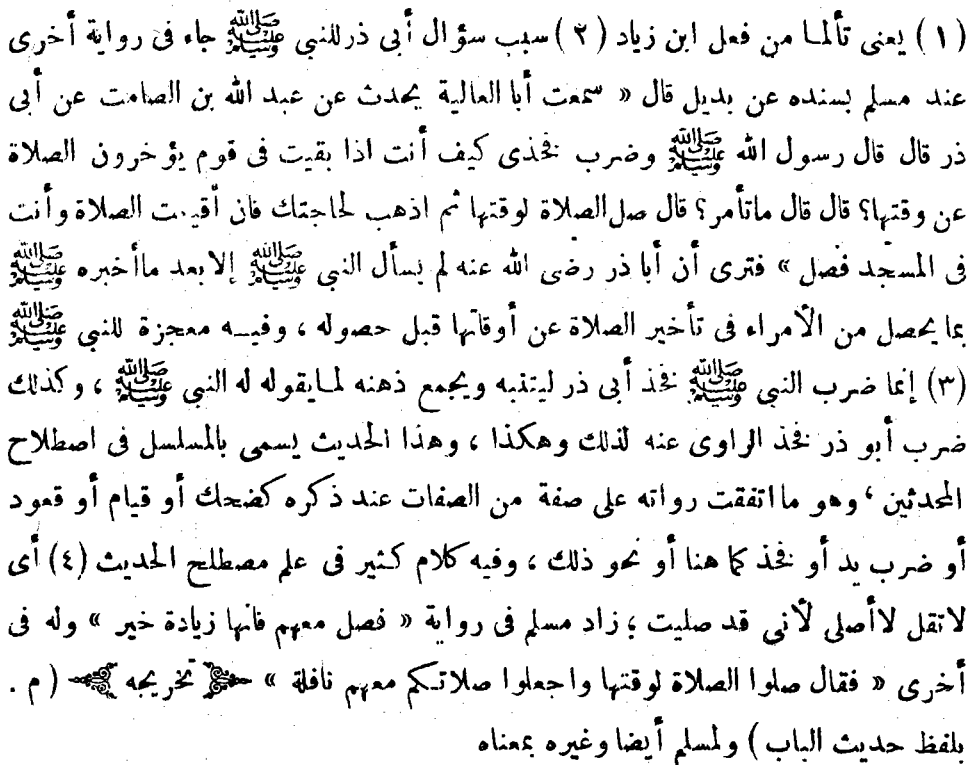 (١) يعنى تألمـا من فعل ابن زياد (٢) سبب سؤال أبى ذر للنبى ﷺ جاء فى رواية أخرى
عند مسلم بسنده عن بديل قال « سمعت أبا العالية يحدث عن عبد الله بن الصامت عن أبى
ذر قال قال رسول الله ﷺ وضرب فخذى كيف أنت اذا بقيت فى قوم يؤخرون الصلاة
عن وقتها؟ قال قال ماتأمر؟ قال صل الصلاة لوقتها ثم اذهب لحاجتك فان أقيمت الصلاة وأنت
فى المسجد فصل » فترى أن أبا ذر رضى الله عنه لم يسأل النبى ﷺ إلا بعد ماأخبره ﷺ
بما يحصل من الأمراء فى تأخير الصلاة عن أوقاتها قبل حصوله ، وفيـه معجزة للنبى ﷺ
(٣) إنما ضرب النبى ﷺ فخذ أبى ذر ليتنبه ويجمع ذهنه لمـايقوله له النبى ﷺ ، وكذلك
ضرب أبو ذر فخذ الراوى عنه لذلك وهكذا ، وهذا الحديث يسمى بالمسلسل فى اصطلاح
المحدثين ، وهو مااتفقت رواته على صفة من الصفات عند ذكره كضحك أو قيام أو قعود
أو ضرب يد أو فخذ كما هنا أو نحو ذلك ، وفيه كلام كـثير فى علم مصطلح الحديث (٤) أى
لاتقل لاأصلى لأنى قد صليت ؛ زاد مسلم فى رواية « فصل معهم فانها زيادة خير » وله فى
أخرى « فقال صلوا الصلاة لوقتها واجعلوا صلاتـكم معهم نافلة » تخريجه ( م .
بلفظ حديث الباب ) ولمسلم أيضا وغيره بمعناه